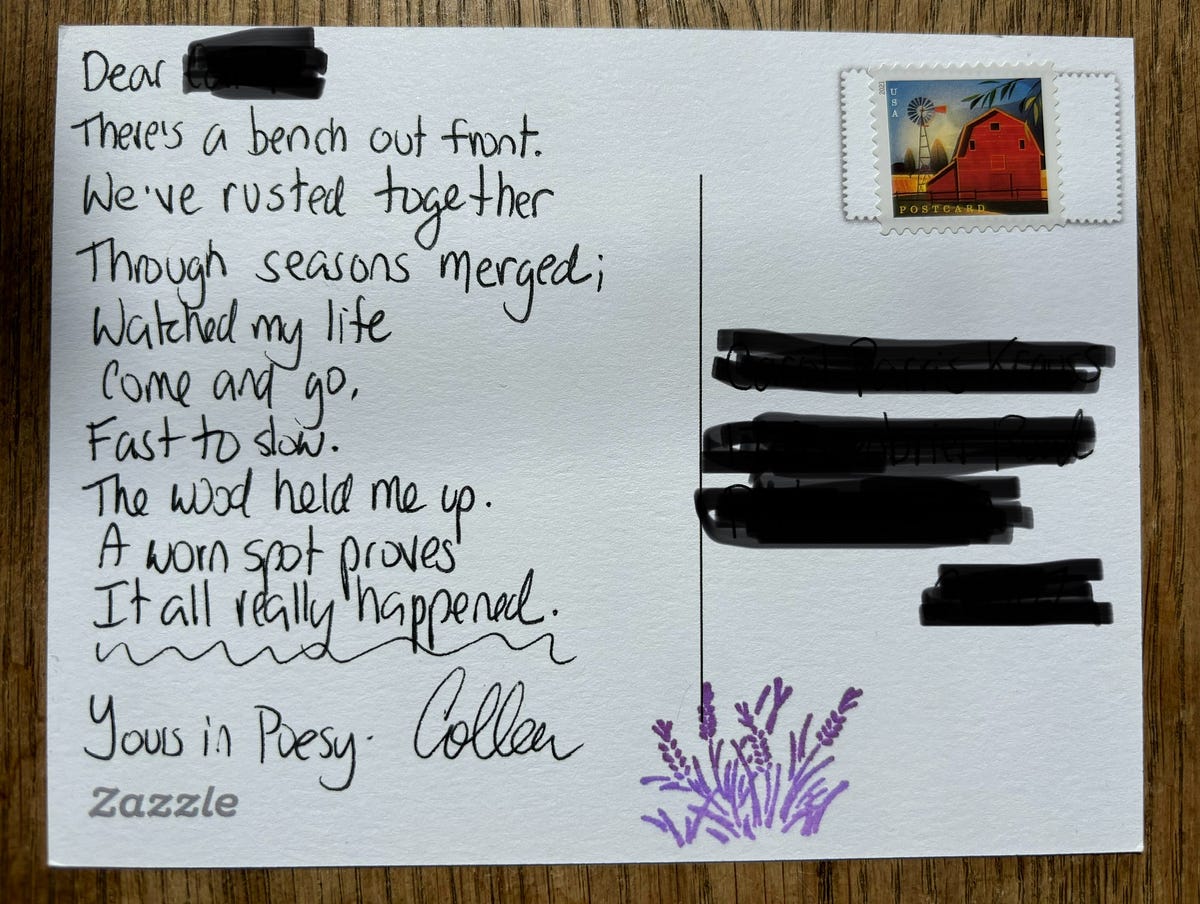 Dear
There's a bench out front.
We've rusted together
Through seasons merged;
Watched my life
Come and go,
Fast to slow.
The wood held me up.
A worn spot proves
It all really happened.
Yours in Poesy. Colleen
Zazzle
USA
POSTCARD